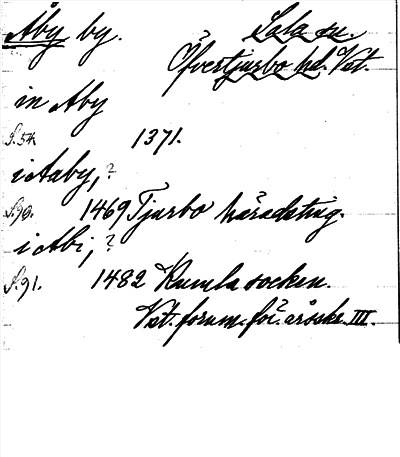 Åby by. Sala sn.
Öfvertjurbo hd. Vst.
in Aby
S. 54 1371.
i Aaby, ?
S. 90. 1469 Tjurbo häradsting.
i Abi, ?
S. 91. 1482 Kumla socken.
Vst. fornm. för. årsskr. III.